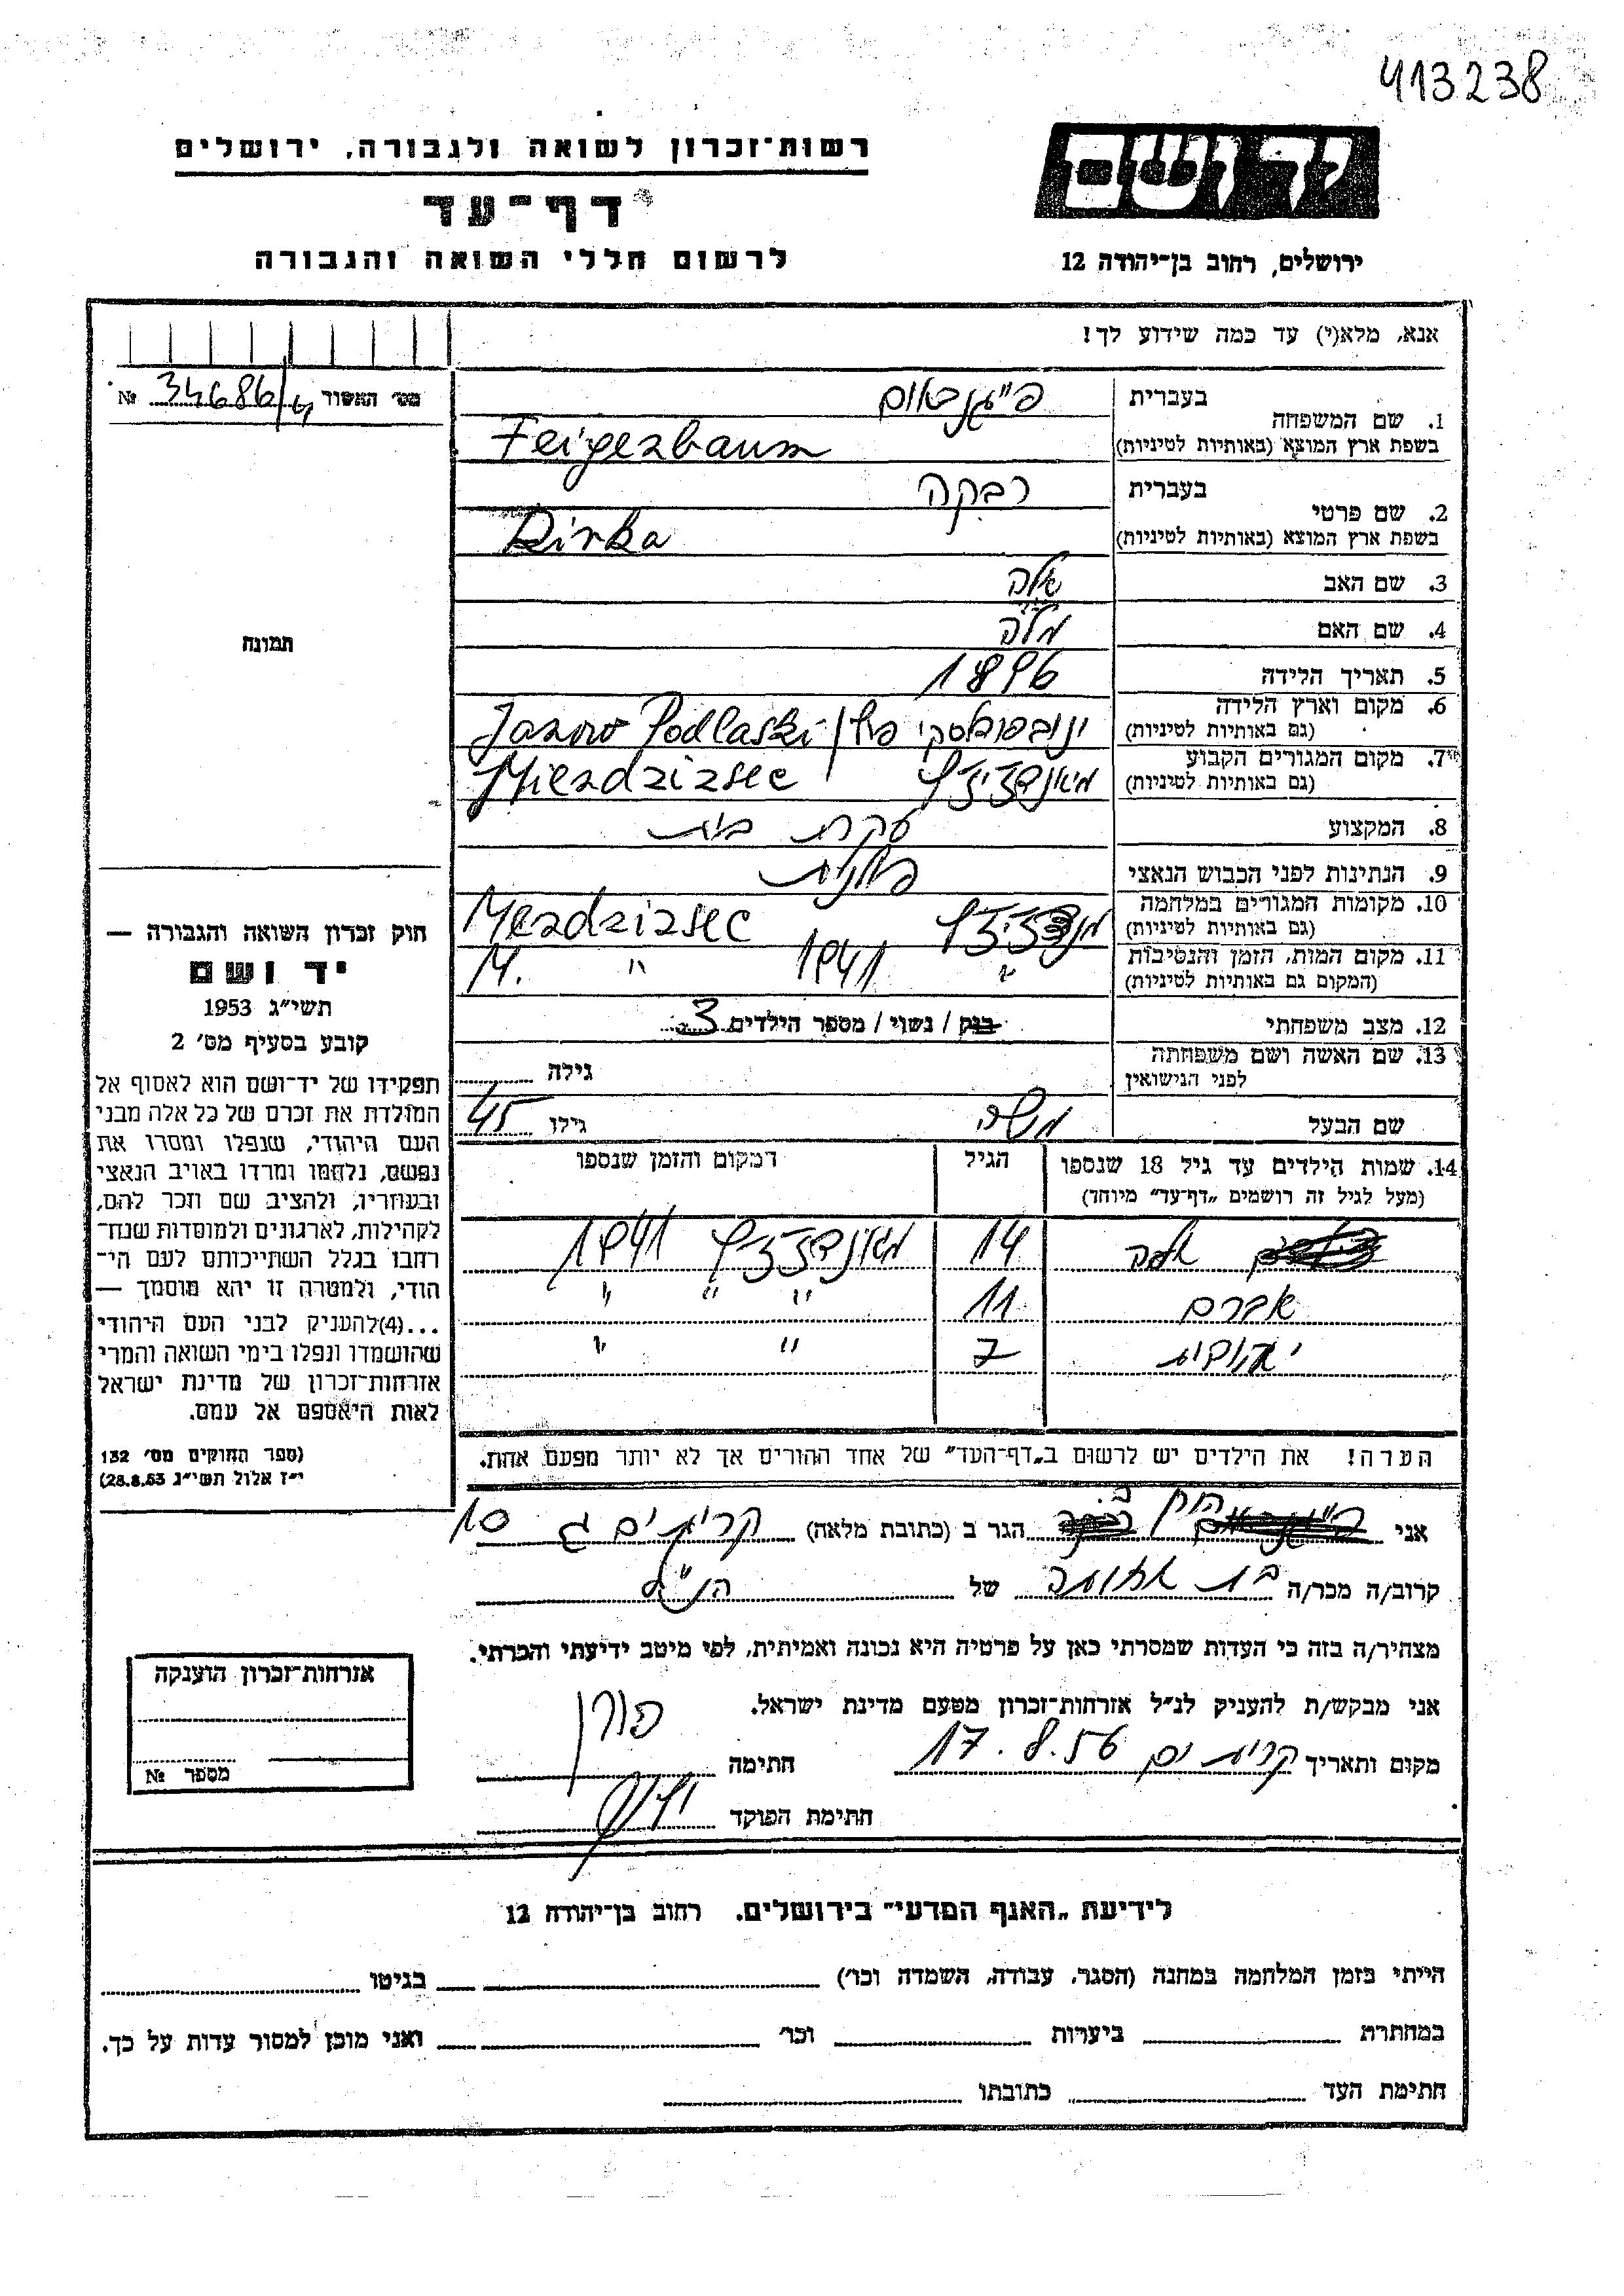 413238
רשות־זכרון לשואה ולגבורה, ירושלים
יד ושם
דף־עד
לרשום חללי השואה והגבורה
ירושלים, רחוב בן־יהודה 12
אנא, מלא(י) עד כמה שידוע לך!
מס׳ האשור 34686/4 №
1. שם המשפחה
בעברית פייגנבאום
בשפת ארץ המוצא (באותיות לטיניות) Feigenbaum
2. שם פרטי
בעברית רבקה
בשפת ארץ המוצא (באותיות לטיניות) Rirka
3. שם האב
4. שם האם מלה
5. תאריך הלידה 1896
6. מקום וארץ הלידה
(גם באותיות לטיניות) Janow Podlaski
7. מקום המגורים הקבוע
(גם באותיות לטיניות) Miendzizsec
8. המקצוע עקרת בית
9. הנתינות לפני הכבוש הנאצי פולנית
10. מקומות המגורים במלחמה
(גם באותיות לטיניות) Mendzizsec
11. מקום המות, הזמן והנסיבות 1941
(המקום גם באותיות לטיניות) M. "
12. מצב משפחתי רווק / נשוי / מספר הילדים 3
13. שם האשה ושם משפחתה
לפני הנישואין גילה
שם הבעל משה גילו 45
תמונה
חוק זכרון השואה והגבורה —
יד ושם
תשי״ג 1953
קובע בסעיף מס׳ 2
תפקידו של יד־ושם הוא לאסוף אל
המולדת את זכרם של כל אלה מבני
העם היהודי, שנפלו ומסרו את
נפשם, נלחמו ומרדו באויב הנאצי
ובעוזריו, ולהציב שם וזכר להם,
לקהילות, לארגונים ולמוסדות שנח־
רבו בגלל השתייכותם לעם הי־
הודי, ולמטרה זו יהא מוסמך —
...(4) להעניק לבני העם היהודי
שהושמדו ונפלו בימי השואה והמרי
אזרחות־זכרון של מדינת ישראל
לאות היאספם אל עמם.
(ספר החוקים מס׳ 132
י״ז אלול תשי״ג 28.8.53)
14. שמות הילדים עד גיל 18 שנספו הגיל המקום והזמן שנספו
(מעל לגיל זה רושמים „דף־עד״ מיוחד)
14 1941
אברם 11 " " "
יהודית 7 " "
הערה! את הילדים יש לרשום ב„דף־העד״ של אחד ההורים אך לא יותר מפעם אחת.
אני הגר ב (כתובת מלאה) קרית ים ג 10
קרוב/ה מכר/ה של הנ״ל
מצהיר/ה בזה כי העדות שמסרתי כאן על פרטיה היא נכונה ואמיתית, לפי מיטב ידיעתי והכרתי.
אני מבקש/ת להעניק לנ״ל אזרחות־זכרון מטעם מדינת ישראל.
מקום ותאריך קרית ים 17.8.56 חתימה
חתימת הפוקד
אזרחות־זכרון הוענקה
מספר №
לידיעת „האגף המדעי״ בירושלים, רחוב בן־יהודה 12
הייתי בזמן המלחמה במחנה (הסגר, עבודה, השמדה וכו׳) בגיטו
במחתרת ביערות וכו׳ ואני מוכן למסור עדות על כך.
חתימת העד כתובתו